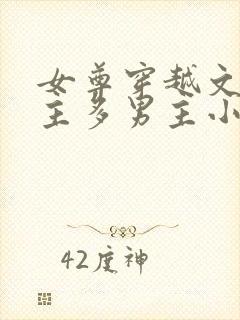 女尊穿越文
主多男主小
42度神